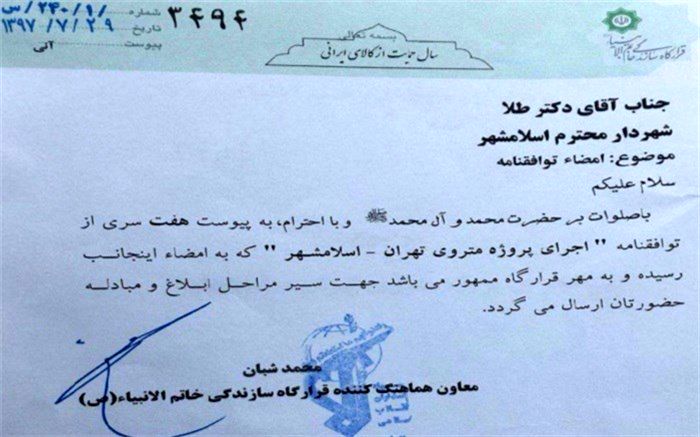 بسمه تعالی
سال حمایت از کالای ایرانی
شماره: ۳۴۹۴ /۲۴۰/۱/س
تاریخ ۱۳۹۷/۷/۲۹
پیوست آنی
قرارگاه سازندگی خاتم الانبیاء
جناب آقای دکتر طلا
شهردار محترم اسلامشهر
موضوع: امضاء توافقنامه
سلام علیکم
باصلوات بر حضرت محمد و آل محمدﷺ و با احترام، به پیوست هفت سری از
توافقنامه " اجرای پروژه متروی تهران - اسلامشهر " که به امضاء اینجانب
رسیده و به مهر قرارگاه ممهور می باشد جهت سیر مراحل ابلاغ و مبادله
حضورتان ارسال می گردد.
محمد شبان
معاون هماهنگ کننده قرارگاه سازندگی خاتم الانبیاء(ص)
انقلاب
اسلامی